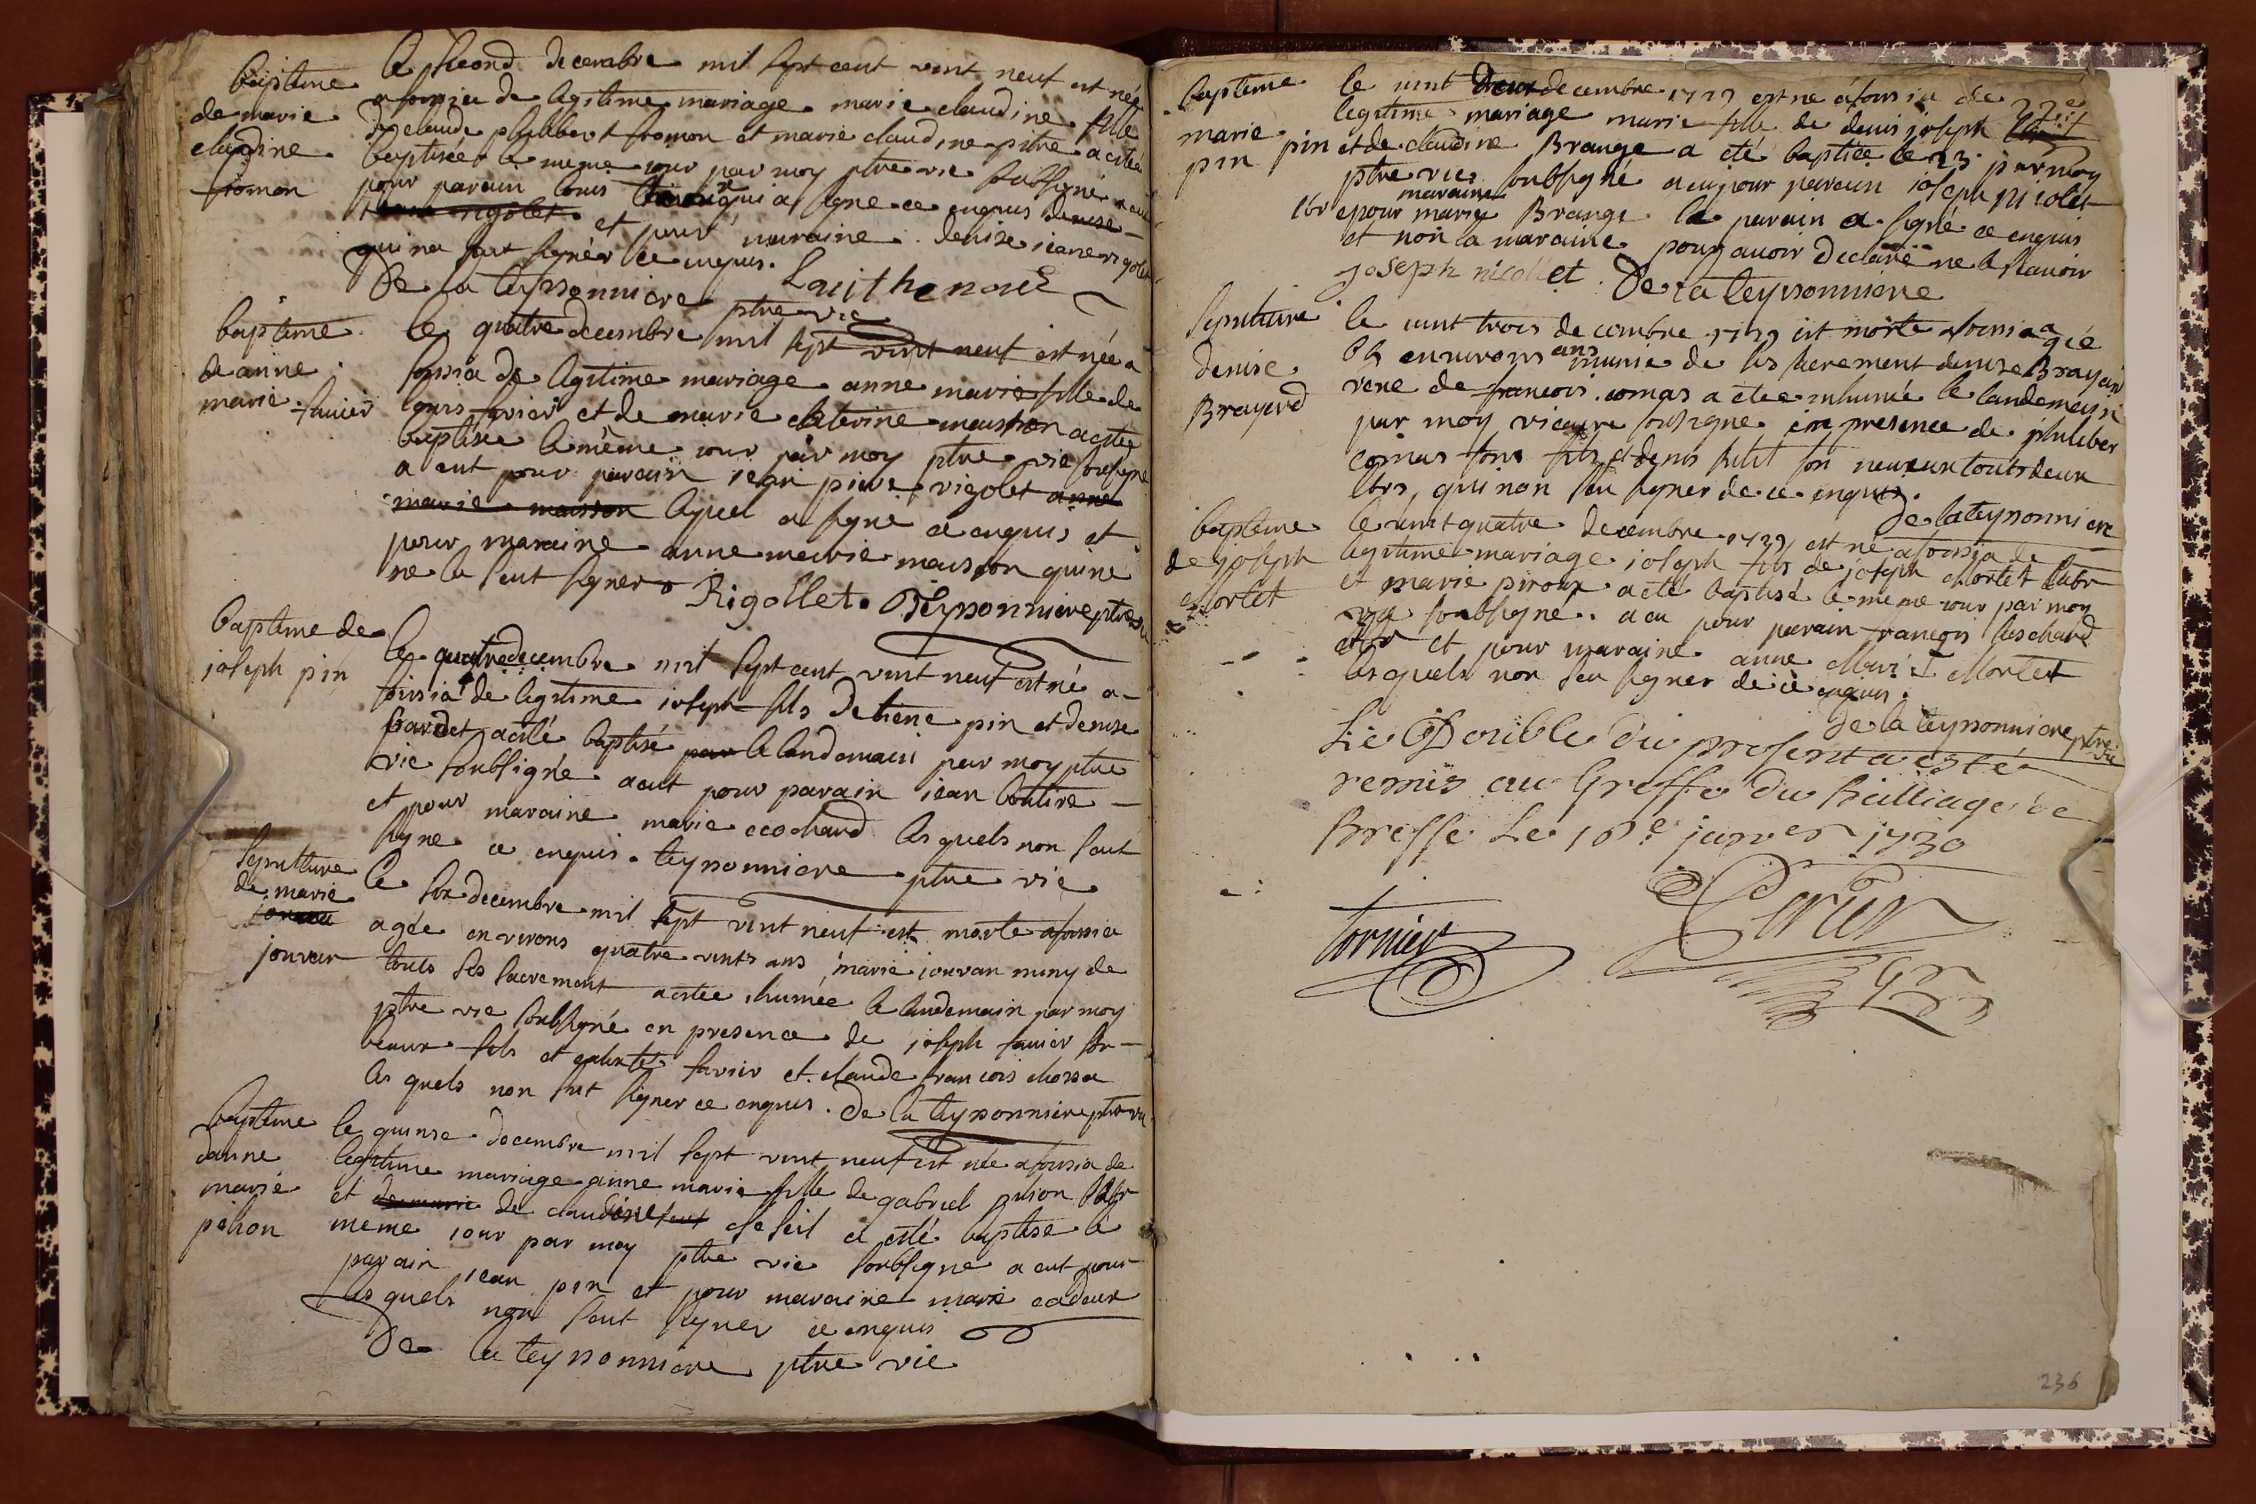 bapteme
de marie
claudine
fromon
le second decembre mil sept cent vint neuf est née
a foissia de legitime mariage marie claudine fille
de claude philibert fromon et marie claudine pitre a estée
baptisée le meme iour par moy ptre vic soubsigné a eut
pour parain louis qui a signe ce enquis denise
rigolet et pour maraine denise ieane rigolet
qui na seut signer ce enquis.
De la teyssonniere ptre vic
baptême
de anne
marie favier
le quatre decembre mil sept vint neuf est née a
foissia de legitime mariage anne marie fille de
louis favier et de marie caterine maisson a estee
baptisee le même iour par moy ptre vic soubsigne
a eut pour parain iean piere rigolet anne
marie maisson lequel a signe ce enquis et
pour maraine anne marie maisson qui ne
ne la seut signer Rigollet. Teyssonniere ptre vic
baptême de
ioseph pin
le quatre decembre mil sept cent vint neuf est né a
foissia de legitime ioseph fils detiene pin et denise
a esté baptisé par le landemain par moy ptre
vic soubsigné a eut pour parain iean
et pour maraine marie ecochard les quels non seut
signe ce enquis. teyssonniere ptre vic
sepulture
de marie
jouvan
le six decembre mil sept vint neuf est morte a foissia
agée environs quatre vints ans marie iouvan muny de
touts ses sacrement a estee ihumée le landemain par moy
ptre vic soubsigné en presence de ioseph favier son
beaux fils et favier et claude francois
les quels non sut signer ce enquis. De la teyssonniere ptre vic
baptême
danne
marie
pelion
le quinse decembre mil sept vint neuf est née a foissia de
legitime mariage anne marie fille de gabriel pelion labr
et de marie de claudine a esté baptise le
meme iour par moy ptre vic soubsigne a eut pour
parain iean pin et pour maraine marie cadeux
les quels non seut signer ce enquis
De la teyssonniere ptre vic
baptême
marie
pin
le vint deux decembre 1729 est ne a foissia de
legitime mariage marie fille de denis ioseph
pin et de claudine Brange a eté baptisée le 23 par moy
ptre vic soubsigné a eu pour parain ioseph nicolet
et pour maraine marie Brange le parain a signé ce enquis
et non la maraine pour avoir declaré ne le scavoir
joseph nicollet De la teyssonniere
Sepulture
denise
Brayard
le vint trois decembre 1729 est morte a foissia agée
environs ans munie de ses sacrement denise Brayard
veve de francois comas a etée inhumé le landemain
par moy vicaire sousigne en presence de philiber
comas son fils et denis petit son neveux touts deux
lbrs, qui non seu signer de ce enquis.
de la teyssonniere
baptême
de joseph
Mortet
le vint quatre decembre 1729 est né a foissia de
legitime mariage ioseph fils de joseph Mortet labr
et marie piroux a eté baptisé le meme iour par moy
vic soubsigne. a eu pour parain françois
et pour maraine anne Mortet
lesquels non seu signer de ce enquis.
de la teyssonniere ptre vic
Le Double du present a esté
remis au Greffe du Bailliage de
Bresse Le janver 1730
tornier
236